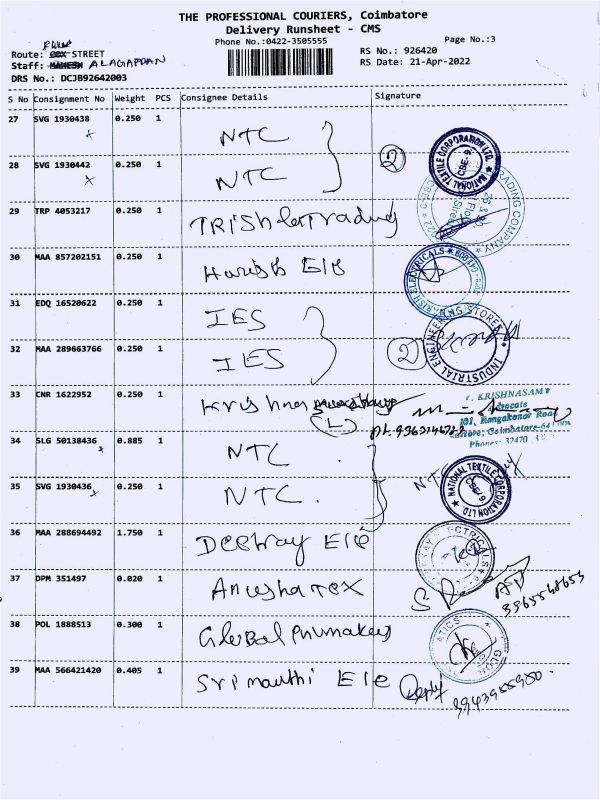 THE PROFESSIONAL COURIERS, Coimbatore
Delivery Runsheet - CMS
Phone No.:0422-3505555
Page No.:3
Route: STREET
RS No.: 926420
Staff: ALAGAPPAN
RS Date: 21-Apr-2022
DRS No.: DCJB92642003
S No Consignment No Weight PCS Consignee Details Signature
27 SVG 1930438 0.250 1 NTC
28 SVG 1930442 0.250 1 NTC
2
NATIONAL TEXTILE CORPORATION LTD. CBE-9
29 TRP 4053217 0.250 1 Trisha Trading
TRADING COMPANY
30 MAA 857202151 0.250 1 Harish Ele
HARISH ELECTRICALS
31 EDQ 16520622 0.250 1 IES
32 MAA 289663766 0.250 1 IES
2
INDUSTRIAL ENGINEERING STORES
33 CNR 1622952 0.250 1 Krishna
(L)
KRISHNASAMY
Advocate
101, Rangakonar Road
Coimbatore-641
Phones: 32470
34 SLG 50138436 0.885 1 NTC
35 SVG 1930436 0.250 1 NTC
NTC
NATIONAL TEXTILE CORPORATION LTD CBE-9
36 MAA 288694492 1.750 1 Ele
37 DPM 351497 0.020 1 Anusha Tex
38 POL 1888513 0.300 1 Global
39 MAA 566421420 0.405 1 Ele